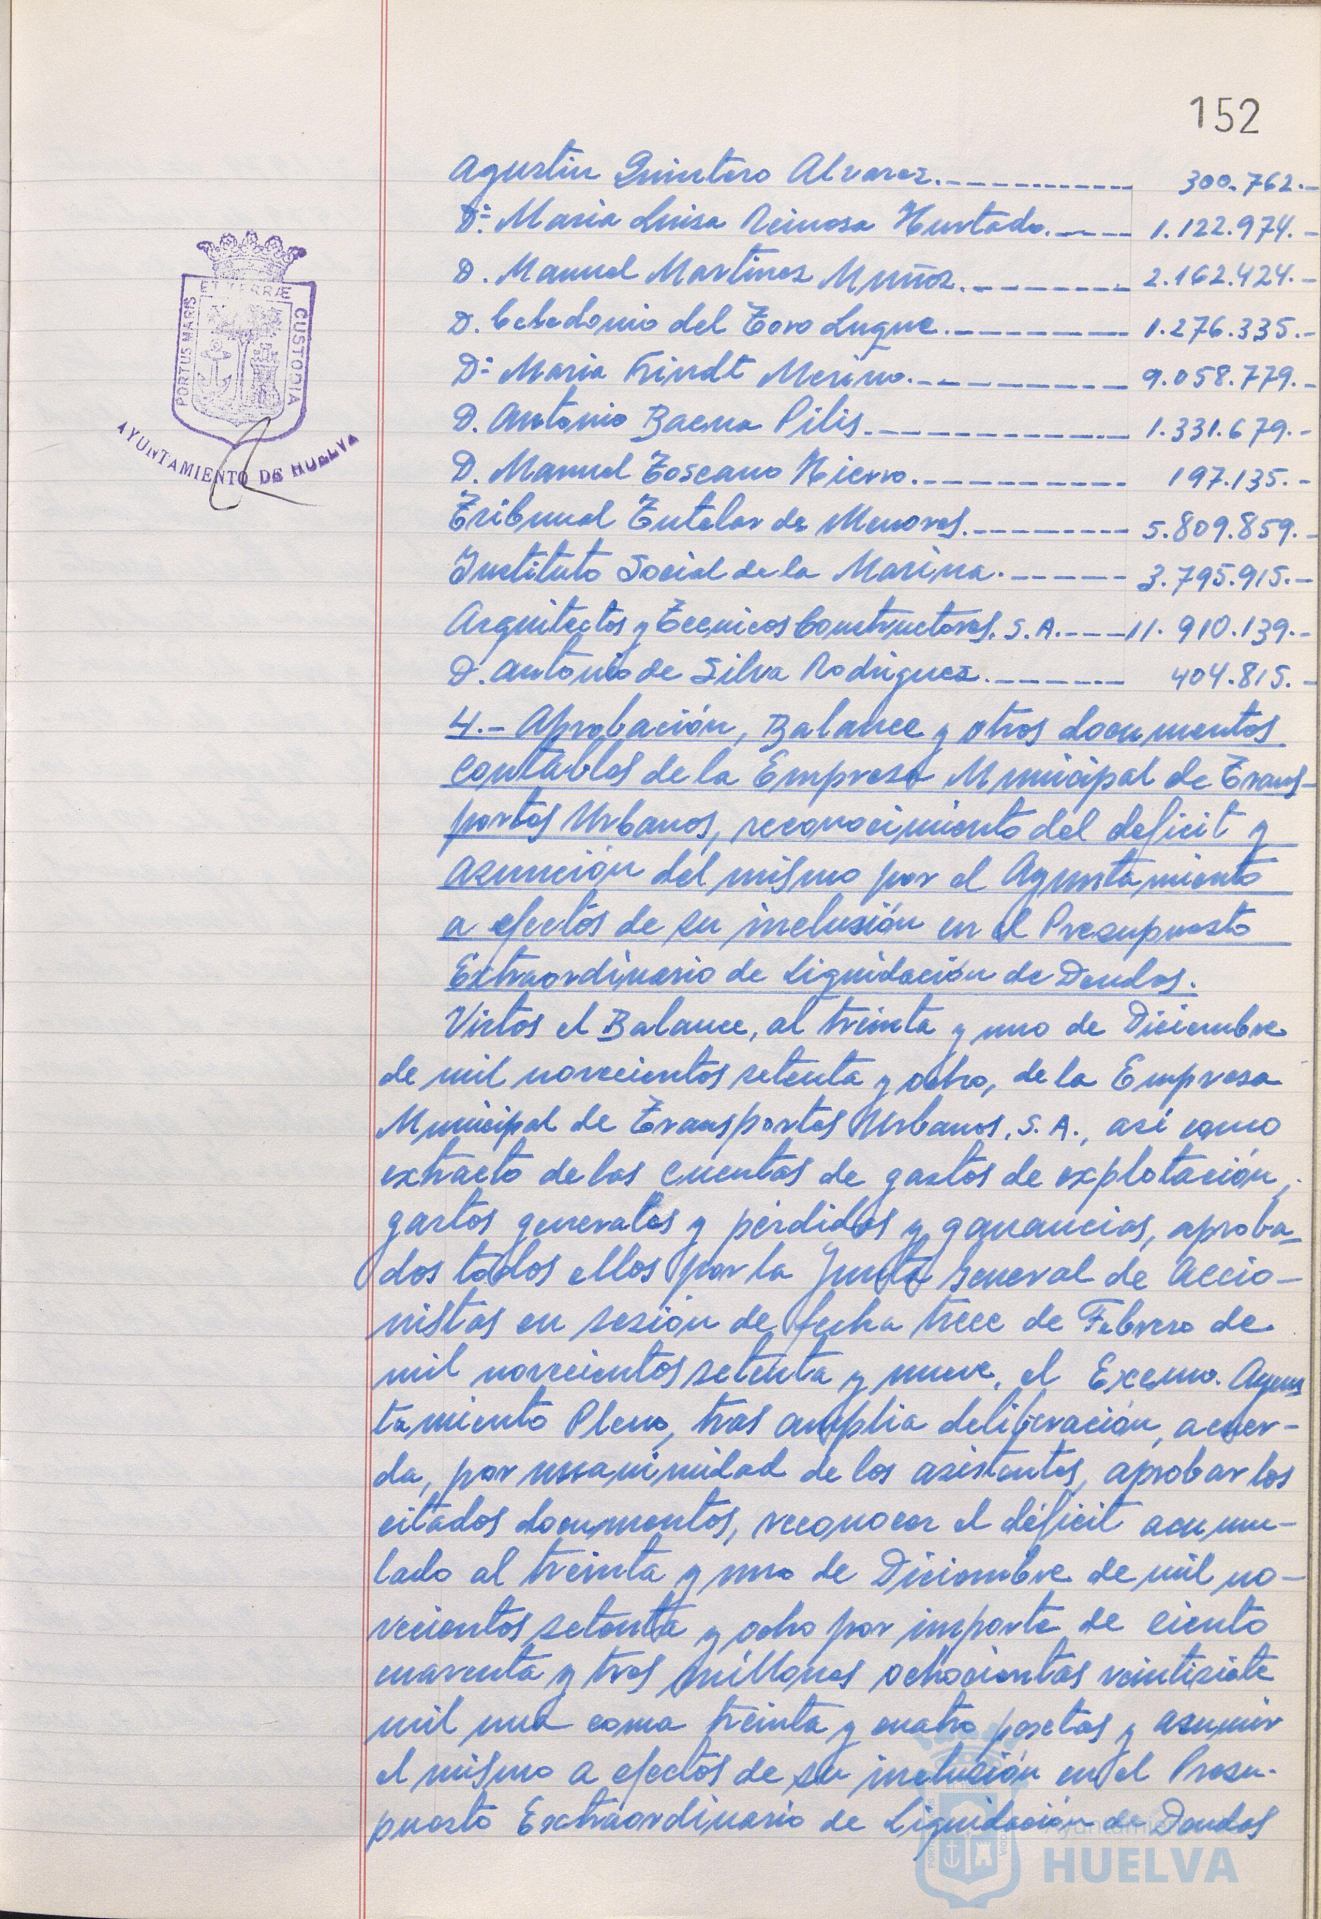 152
Agustín Quintero Alvarez.------------ 300.762.-
Dª María Luisa Reinosa Hurtado.---- 1.122.974.-
D. Manuel Martínez Muñoz.--------- 2.162.424.-
D. Celedonio del Toro Luque.--------- 1.276.335.-
Dª María Frindt Merino.---------- 9.058.779.-
D. Antonio Baena Pilis.------------ 1.331.679.-
D. Manuel Toscano Hierro.---------- 197.135.-
Tribunal Tutelar de Menores.-------- 5.809.859.-
Instituto Social de la Marina.------ 3.795.915.-
Arquitectos y Tecnicos Constructores, S.A.---- 11.910.139.-
D. Antonio de Silva Rodríguez.-------- 404.815.-
4.- Aprobación, Balance y otros documentos
contables de la Empresa Municipal de Trans-
portes Urbanos, reconocimiento del deficit y
asunción del mismo por el Ayuntamiento
a efectos de su inclusión en el Presupuesto
Extraordinario de Liquidación de Deudas.
Vistos el Balance, al treinta y uno de Diciembre
de mil novecientos setenta y ocho, de la Empresa
Municipal de Transportes Urbanos, S.A., así como
extracto de las cuentas de gastos de explotación,
gastos generales y pérdidas y ganancias, aproba-
dos todos ellos por la Junta General de Accio-
nistas en sesión de fecha trece de Febrero de
mil novecientos setenta y nueve, el Excmo. Ayun
tamiento Pleno, tras amplia deliberación, acuer-
da, por unanimidad de los asistentes, aprobar los
citados documentos, reconocer el déficit acumu-
lado al treinta y uno de Diciembre de mil no-
vecientos setenta y ocho por importe de ciento
cuarenta y tres millones ochocientas veintisiete
mil una coma treinta y cuatro pesetas y asumir
el mismo a efectos de su inclusión en el Presu-
puesto Extraordinario de Liquidación de Deudas
PORTUS MARIS ET TERRÆ CUSTODIA
AYUNTAMIENTO DE HUELVA
Ayuntamiento de
HUELVA